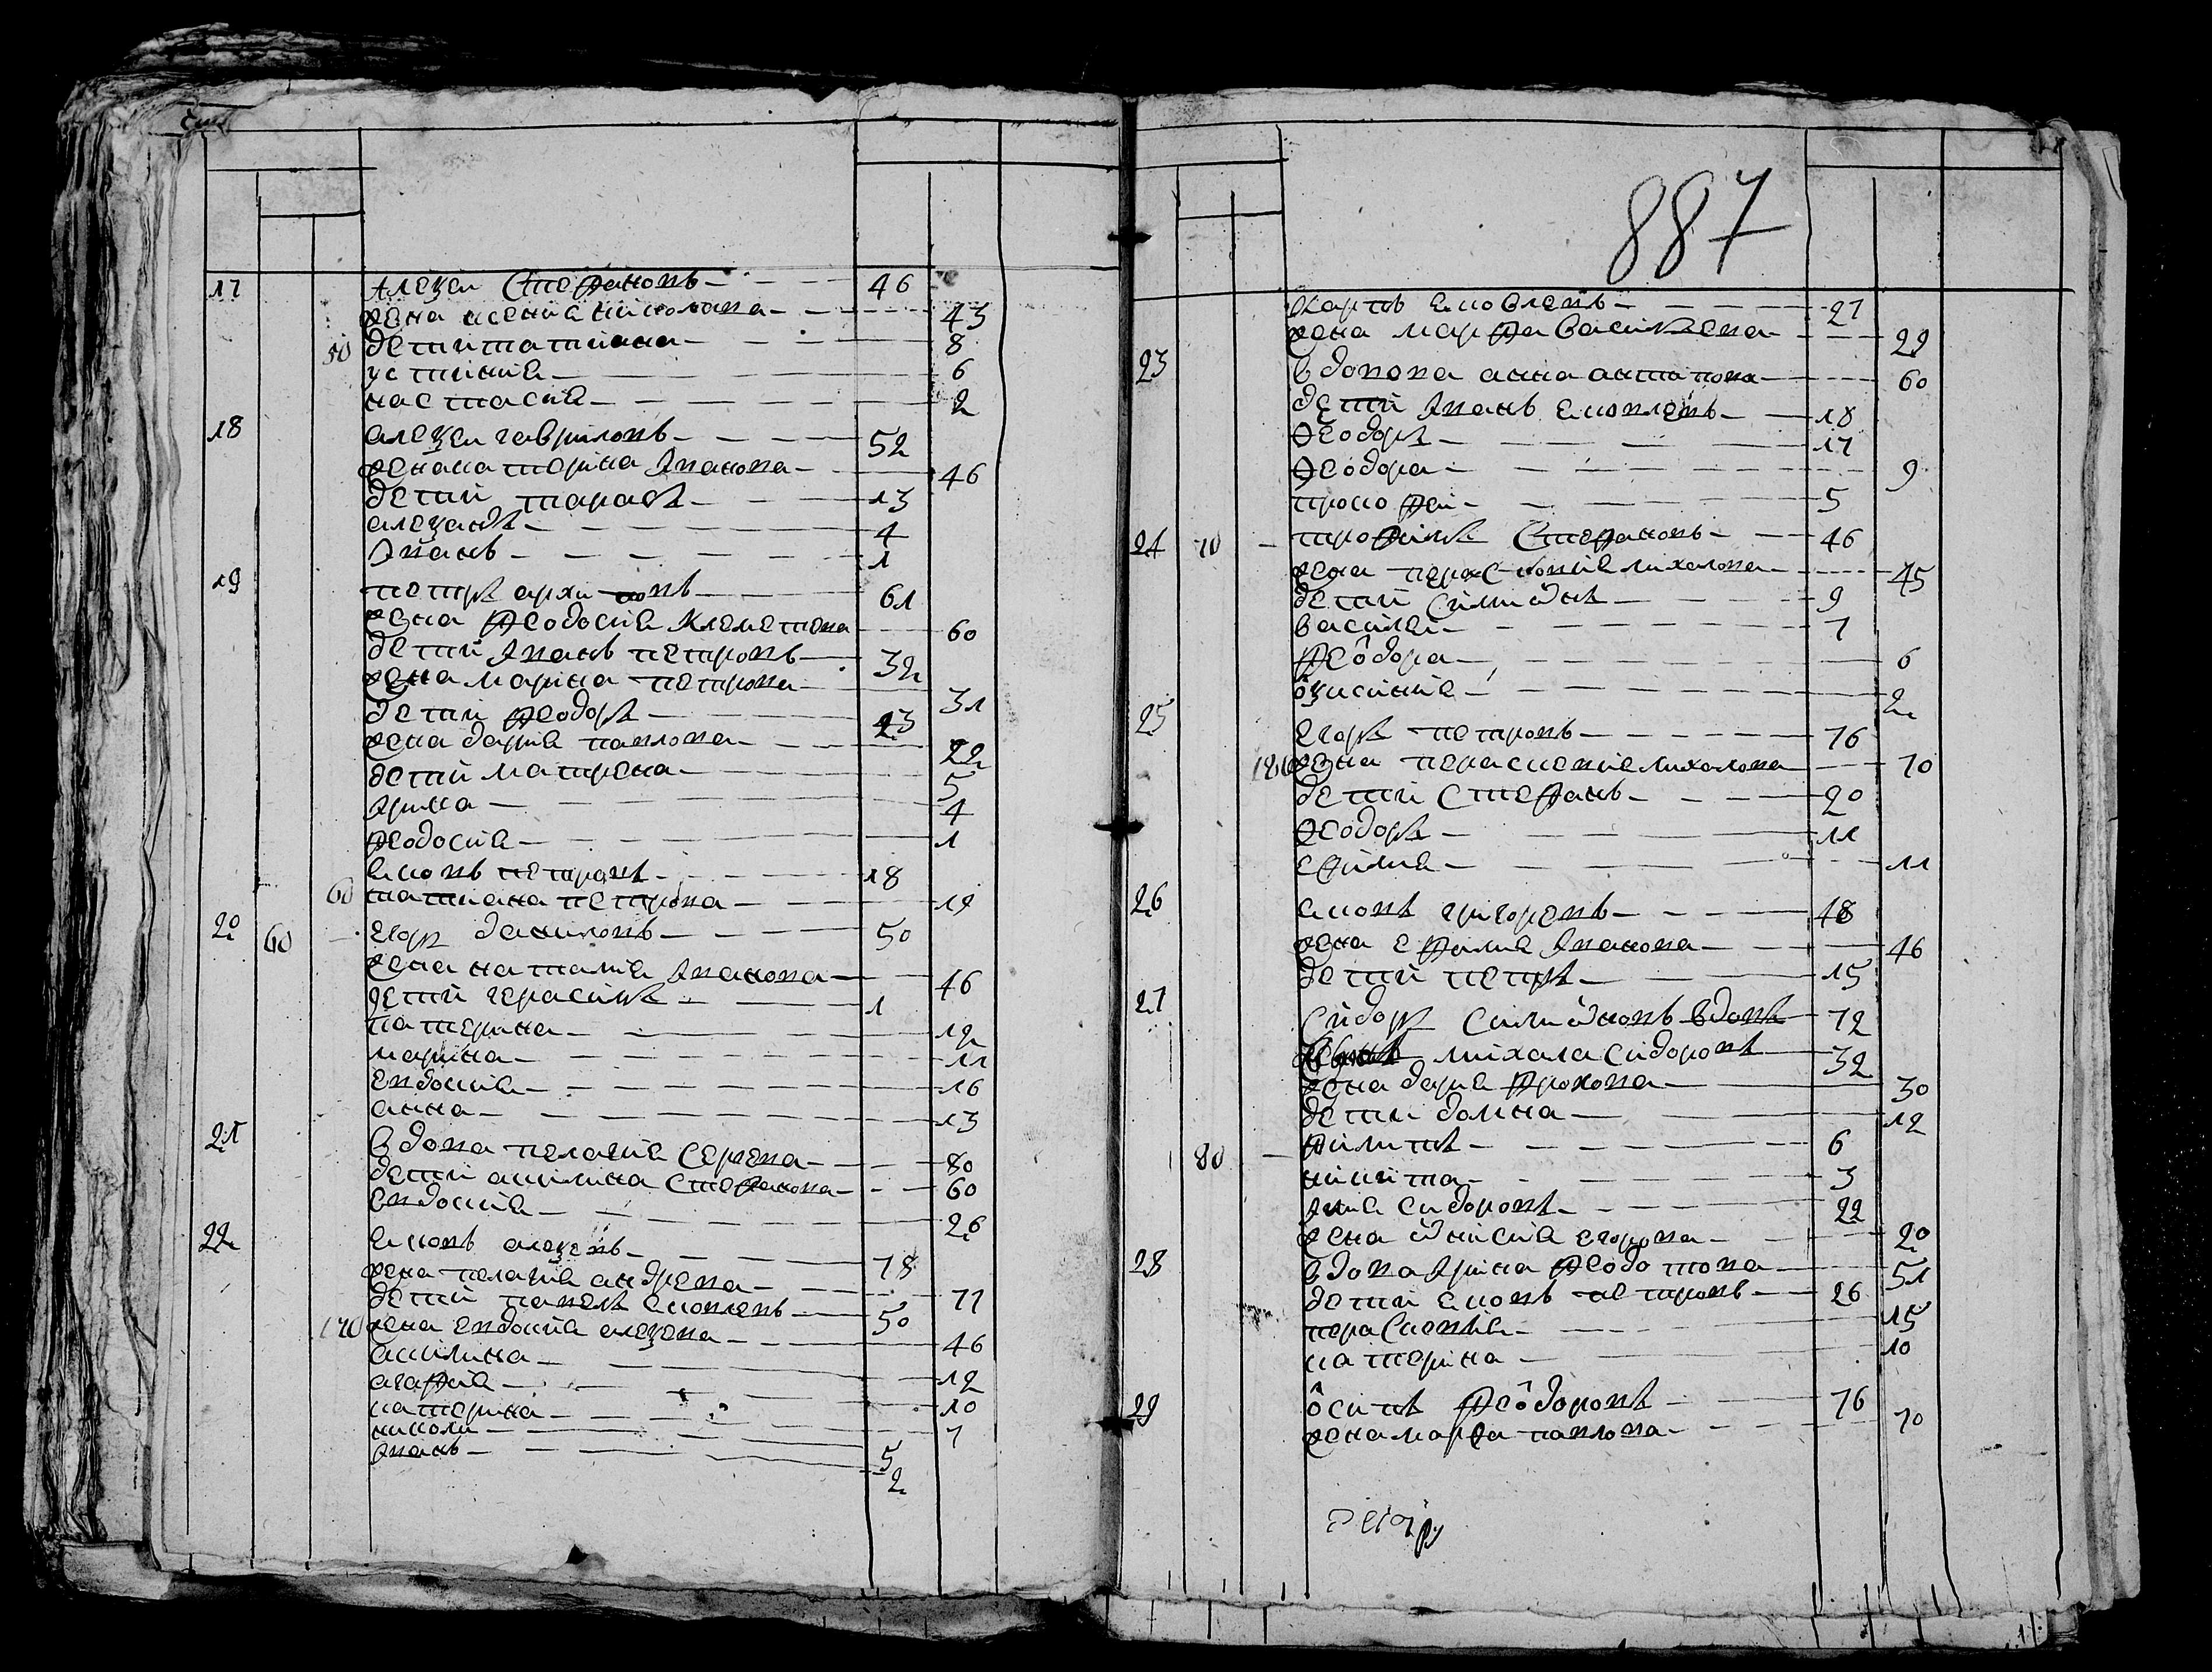 17 Алеѯеи Стефановъ 46
жена ксения николаева 43
50 дети татиана 8
устиния 6
настасия 2
18 алеѯеи гавриловъ 52
жена катерина иванова 46
дети тарасъ 13
алеѯандъ 4
Иванъ 1
19 петръ архиповъ 61
жена феодосия клеметева 60
дети иванъ петровъ 32
жена марина петрова 31
дети феодоръ 23
жена дария павлова 22
дети матрена 5
ирина 4
феодосия 1
яковъ петровъ 18
60 татиана петрова 19
20 60 егоръ даниловъ 50
жена наталия иванова 46
дети герасимъ 1
катерина 12
марина 11
евдокия 16
анна 13
21 вдова пелагия Сергева 80
дети акилина Стефанова 60
евдокия 26
22 яковъ алеѯевъ 78
жена пелагия андрева 77
дети павелъ яковлевъ 50
170 жена евдокия алеѯева 46
акилина 12
агафия 10
катерина 7
николи 5
иванъ 2
887
карпъ яковлевъ 27
жена марфа васильева 29
23 вдовова анна антапова 60
дети Иванъ яковлевъ 18
Ѳеодоръ 17
Ѳеодора 9
прокофеи 5
24 70 трофимъ Стефановъ 46
жена парасковия михалова 45
дети Симионъ 9
василеи 7
феодора 6
оѯисиния 2
25 Егоръ петровъ 76
180 жена параскевия михалова 70
дети Стефанъ 20
Ѳеодоръ 11
ефимия 11
26 яковъ григоревъ 48
жена ефимия Иванова 46
дети петръ 15
27 Сидоръ Симионовъ вдовъ 72
михаила сидоровъ 32
жена дария фролова 30
дети домна 12
80 филипъ 6
никита 3
илия сидоровъ 22
жена анисия егорова 20
28 вдова Ирина феодотова 51
дети яковъ петровъ 26
параскевия 15
катерина 10
29 осипъ феодоровъ 76
жена марфа павлова 70